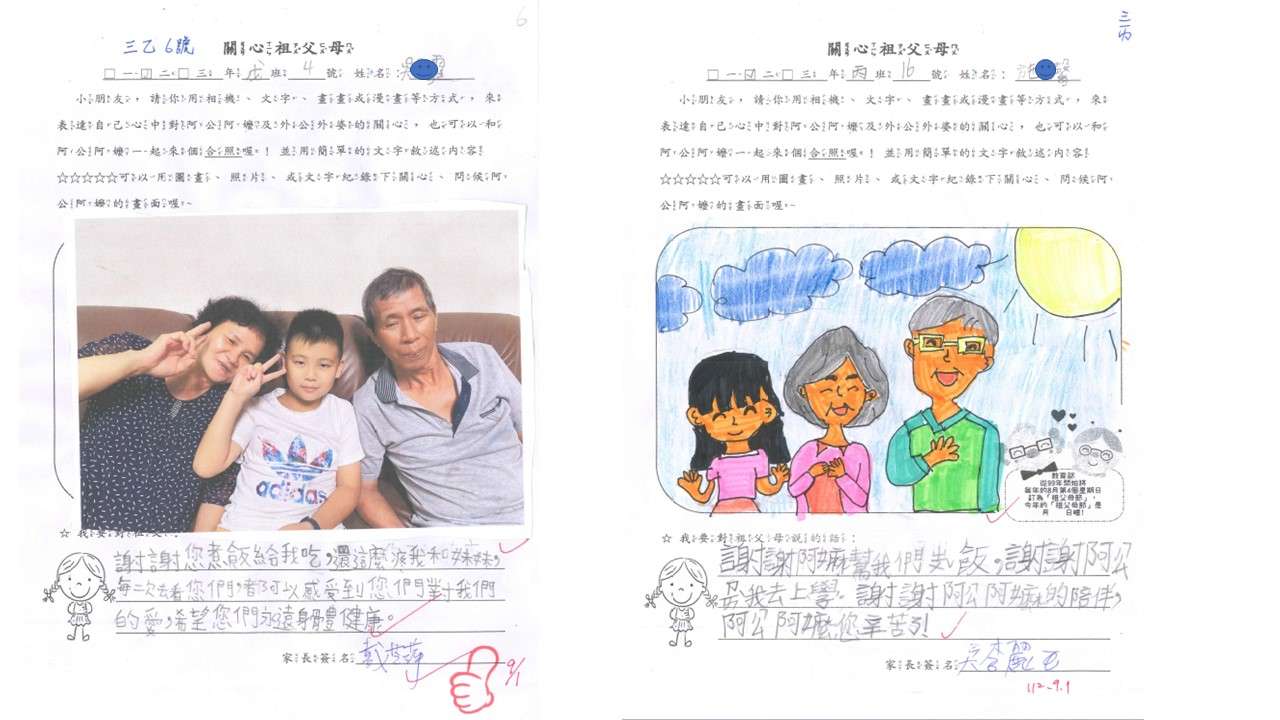 6
三乙 6號
關心祖父母
□一☑二□三年戊班4號 姓名:
小朋友，請你用相機、文字、畫畫或漫畫等方式，來
表達自己心中對阿公阿嬤及外公外婆的關心，也可以和
阿公阿嬤一起來個合照喔！並用簡單的文字敘述內容！
☆☆☆☆☆可以用圖畫、照片、或文字紀錄下關心、問候阿
公阿嬤的畫面喔~
adidas
☆ 我要對祖父母說的話:
謝謝您煮飯給我吃，還這麼疼我和妹妹，
每一次去看您們，都可以感受到您們對我們
的愛，希望您們永遠身體健康。
家長簽名:
9/1
三丙
關心祖父母
□一☑二□三年丙班16號 姓名:
小朋友，請你用相機、文字、畫畫或漫畫等方式，來
表達自己心中對阿公阿嬤及外公外婆的關心，也可以和
阿公阿嬤一起來個合照喔！並用簡單的文字敘述內容！
☆☆☆☆☆可以用圖畫、照片、或文字紀錄下關心、問候阿
公阿嬤的畫面喔~
教育部
從99年開始將
每年的8月第4個星期日
訂為「祖父母節」，
今年的「祖父母節」是
月 日喔！
☆ 我要對祖父母說的話:
謝謝阿嬤幫我們煮飯，謝謝阿公
帶我去上學。謝謝阿公阿嬤的陪伴，
阿公阿嬤您辛苦了!
家長簽名:
112.9.1